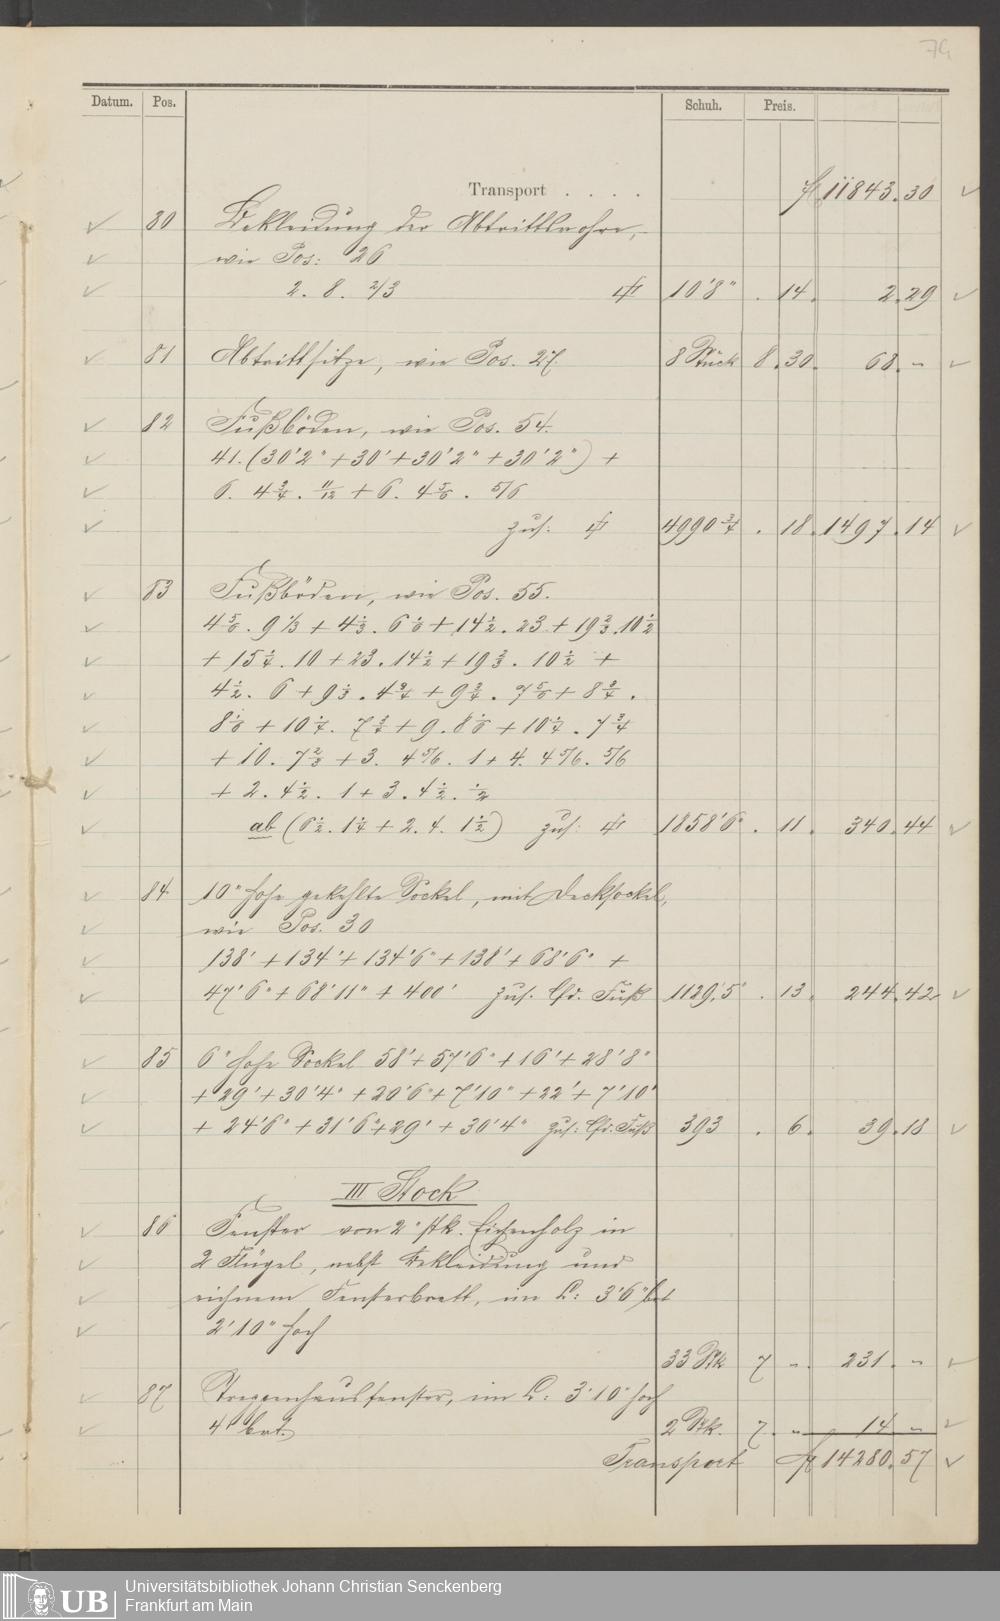 74
Datum. Pos. Schuh. Preis.
Transport . . . . fl 11843. 30
80 Bekleidung der Abtrittrohre,
wie Pos: 26
2. 8. 2/3 10'8" . 14. 2. 29
81 Abtrittsitze, wie Pos. 27. 8 Stück 8. 30. 68. "
82 Fußböden, wie Pos. 54.
41. (30'2" + 30' + 30'2" + 30'2") +
6. 4 3/4 . 11/12 + 6. 4 5/6 . 5/6
zus: 4990 3/4 . 18. 1497. 14
83 Fußböden, wie Pos. 55.
4 5/6 . 9 1/3 + 4 1/3 . 6 1/6 + 14 1/2 . 23 + 19 2/3 . 10 1/2
+ 15 1/4 . 10 + 23 . 14 1/2 + 19 2/3 . 10 1/2 +
4 1/2 . 6 + 9 1/3 . 4 3/4 + 9 3/4 . 7 5/6 + 8 3/4 .
8 1/6 + 10 1/4 . 7 3/4 + 9 . 8 1/6 + 10 1/4 . 7 3/4
+ 10 . 7 2/3 + 3. 4 5/6 . 1 + 4. 4 5/6 . 5/6
+ 2. 4 1/2 . 1 + 3. 4 1/2 . 1/2
ab (6 1/2 . 1 1/4 + 2. 4. 1 1/2) zus: 1858'6" . 11. 340. 44
84 10" hohe gekehlte Sockel, mit Decksockel,
wie Pos. 30
138' + 134' + 134'6" + 138' + 68'6" +
47'6" + 68'11" + 400' zus. lfd. Fuß 1129'5" . 13. 244. 42
85 6" hohe Sockel 58' + 57'6" + 16' + 28'8"
+ 29' + 30'4" + 20'6" + 7'10" + 22' + 7'10"
+ 24'6" + 31'6" + 29' + 30'4" zus: lfd. Fuß 393 . 6. 39. 18
III Stock
86 Fenster von 2" stk. Eichenholz in
2 Flügel, nebst Bekleidung und
eichnem Fensterbrett, im L: 3'6" brt
2'10" hoch
33 Stk 7 " . 231. "
87 Treppenhausfenster, im L: 3'10" hoch
4' brt. 2 Stk. 7. " . 14. "
Transport fl 14280. 57
UB Universitätsbibliothek Johann Christian Senckenberg
Frankfurt am Main